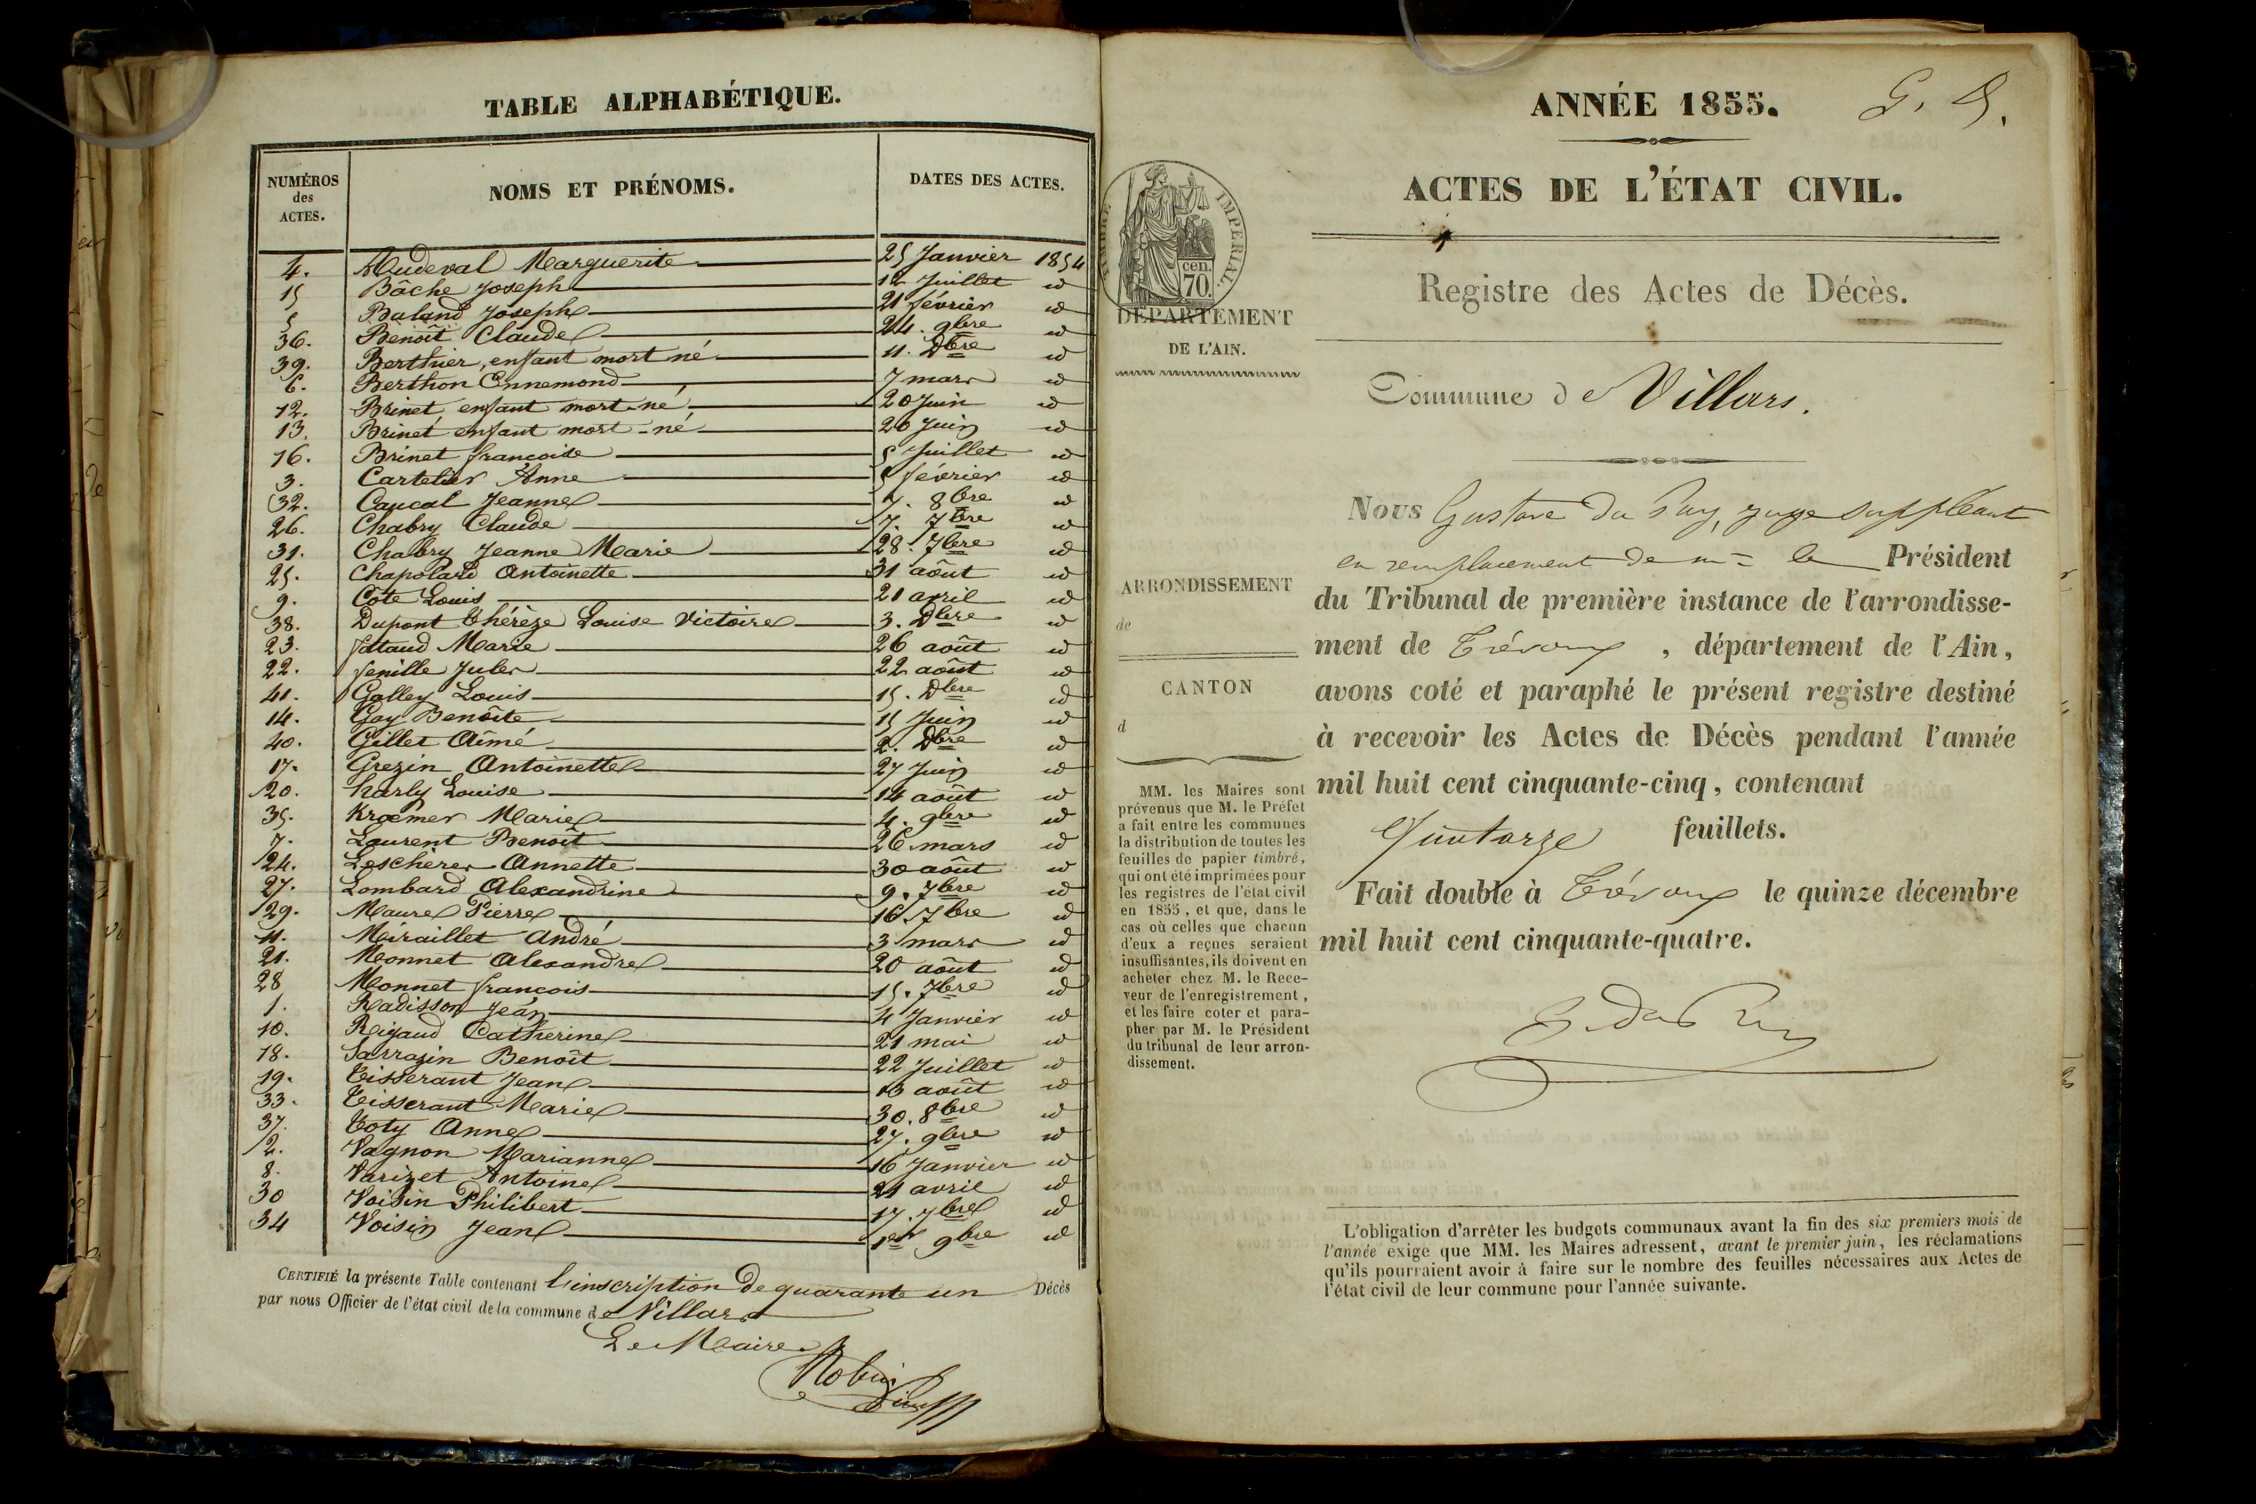 TABLE ALPHABÉTIQUE.
NUMÉROS des ACTES. NOMS ET PRÉNOMS. DATES DES ACTES.
4. Audeval Marguerite 25 Janvier 1854
15 Bâche Joseph 12 Juillet id
5 Baland Joseph 21 février id
36. Benoît Claude 24. 9bre id
39. Berthier, enfant mort né 11. Dbre id
6. Berthon Ennemond 7 mars id
12. Brinet enfant mort-né 20 Juin id
13. Brinet enfant mort-né 20 Juin id
16. Brinet françoise 5 Juillet id
3. Cartelier Anne 5 février id
32. Caucal Jeanne 7. 8bre id
26. Chabry Claude 7. 7bre id
31. Chabry Jeanne Marie 28. 7bre id
25. Chapolard Antoinette 31 août id
9. Côte Louis 21 avril id
38. Dupont Thérèze Louise Victoire 3. Dbre id
23. fataud Marie 26 août id
22. fenille Jules 22 août id
41. Galley Louis 15. Dbre id
14. Gay Benoîte 15 Juin id
40. Gillet Aimé 2. Dbre id
17. Grezin Antoinette 27 Juin id
20. harly Louise 14 août id
35. Kroemer Marie 4. 9bre id
7. Laurent Benoît 26 mars id
24. Leschères Annette 30 août id
27. Lombard Alexandrine 9. 7bre id
29. Maurel Pierre 16. 7bre id
11. Miraillet André 3 mars id
21. Monnet Alexandre 20 août id
28 Monnet françois 15. 7bre id
1. Radisson Jean 4 Janvier id
10. Rigaud Catherine 21 mai id
18. Sarrazin Benoît 22 Juillet id
19. Tisserant Jean 13 août id
33. Tisserant Marie 30. 8bre id
37. Toty Anne 27. 9bre id
2. Vagnon Marianne 16 Janvier id
8. Varizet Antoine 21 avril id
30 Voisin Philibert 17. 7bre id
34 Voisin Jean 1er 9bre id
CERTIFIÉ la présente Table contenant l'inscription de quarante un Décès
par nous Officier de l'état civil de la commune de Villars
Le Maire
Robin
ANNÉE 1855. G. D.
ACTES DE L'ÉTAT CIVIL.
Registre des Actes de Décès.
IMPERIAL.
cen.
70.
DÉPARTEMENT
DE L'AIN.
Commune de Villars.
Nous Gustave du Puy, juge suppléant
en remplacement de mr le Président
du Tribunal de première instance de l'arrondisse-
ment de Trévoux, département de l'Ain,
avons coté et paraphé le présent registre destiné
à recevoir les Actes de Décès pendant l'année
mil huit cent cinquante-cinq, contenant
feuillets.
Fait double à Trévoux le quinze décembre
mil huit cent cinquante-quatre.
G. du Puy
ARRONDISSEMENT
de
CANTON
d
MM. les Maires sont
prévenus que M. le Préfet
a fait entre les communes
la distribution de toutes les
feuilles de papier timbré,
qui ont été imprimées pour
les registres de l'état civil
en 1855, et que, dans le
cas où celles que chacun
d'eux a reçues seraient
insuffisantes, ils doivent en
acheter chez M. le Rece-
veur de l'enregistrement,
et les faire coter et para-
pher par M. le Président
du tribunal de leur arron-
dissement.
L'obligation d'arrêter les budgets communaux avant la fin des six premiers mois de
l'année exige que MM. les Maires adressent, avant le premier juin, les réclamations
qu'ils pourraient avoir à faire sur le nombre des feuilles nécessaires aux Actes de
l'état civil de leur commune pour l'année suivante.